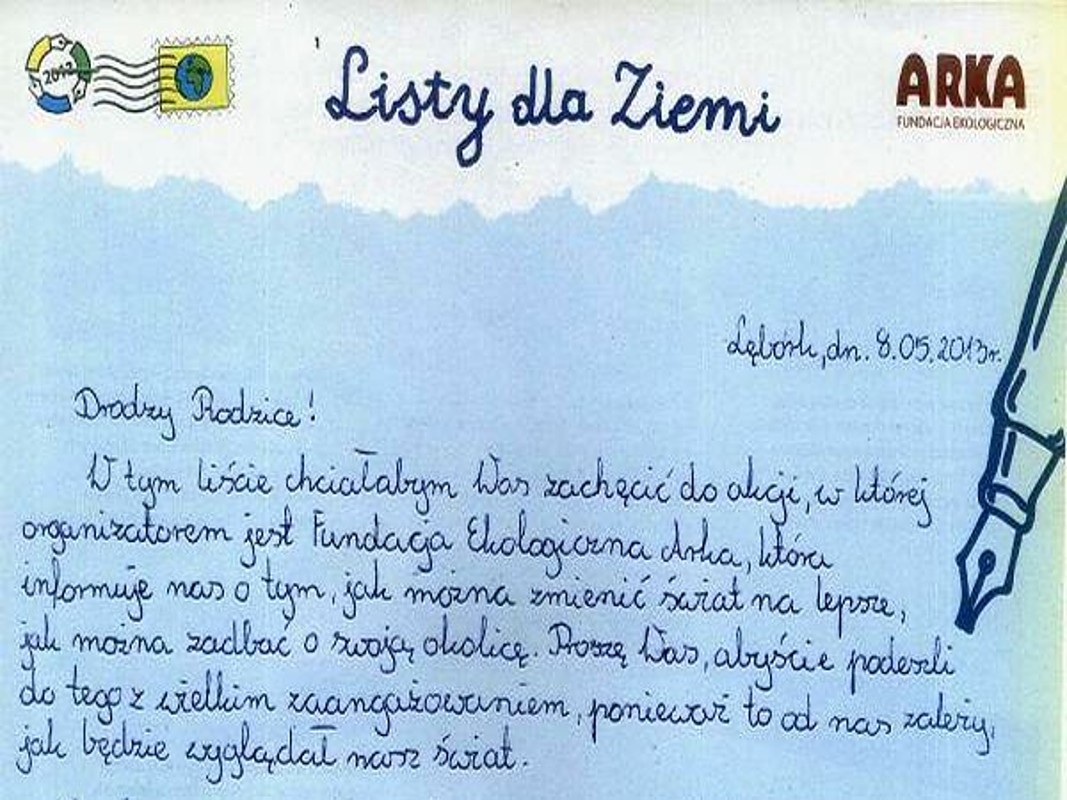 2013
Listy dla Ziemi
ARKA
FUNDACJA EKOLOGICZNA
Lębork, dn. 8.05.2013r.
Drodzy Rodzice!
W tym liście chciałabym Was zachęcić do akcji, w której
organizatorem jest Fundacja Ekologiczna Arka, która
informuje nas o tym, jak można zmienić świat na lepsze,
jak można zadbać o swoją okolicę. Proszę Was, abyście podeszli
do tego z wielkim zaangażowaniem, ponieważ to od nas zależy,
jak będzie wyglądał nasz świat.